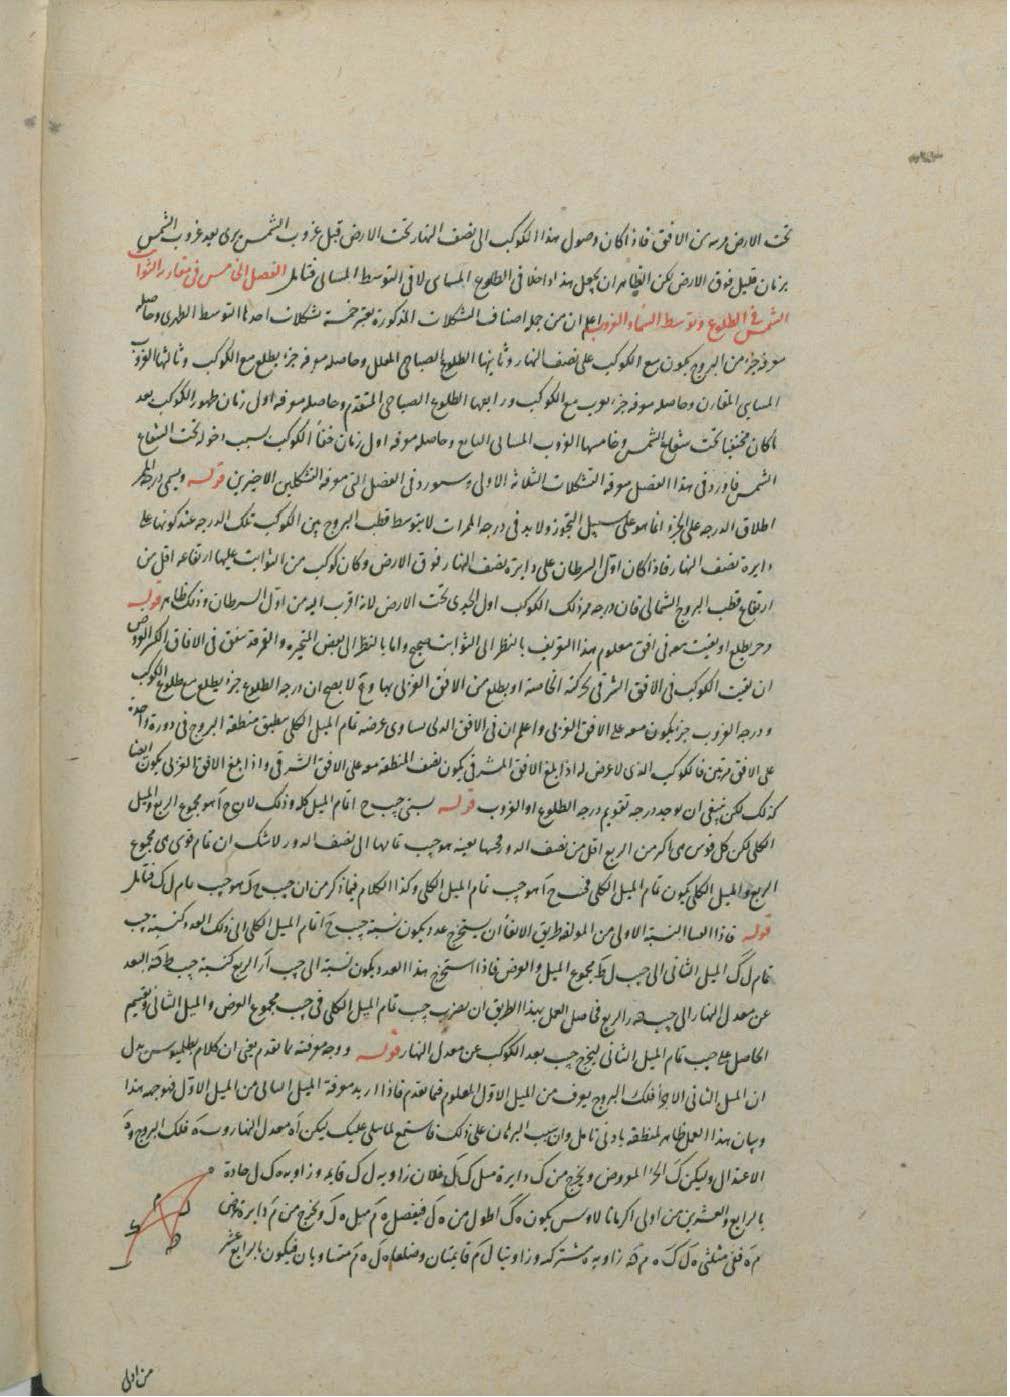 تحت الارض من الافق فاذا كان وصول هذا الكوكب الى نصف النهار تحت الارض قبل غروب الشمس يرى بعد غروب الشمس
بزمان قليل فوق الارض لكن الظاهر ان يجعل هذا داخلا فى الطلوع المسائى لا فى التوسط المسائى فتامل الفصل الخامس فى مقارنة الثوابت
الشمس فى الطلوع وتوسط السماء والغروب اعلم ان من جملة اصناف التشكلات المذكورة يعتبر خمسة تشكلات احدها التوسط الظهرى وحاصله
معرفة جزء من البروج يكون مع الكوكب على نصف النهار وثانيها الطلوع الصباحى وحاصله معرفة جزء يطلع مع الكوكب وثالثها الغروب
المسائى المقارن وحاصله معرفة جزء يغرب مع الكوكب ورابعها الطلوع الصباحى المتقدم وحاصله معرفة اول زمان ظهور الكوكب بعد
ما كان مختفيا تحت شعاع الشمس وخامسها الغروب المسائى التابع وحاصله معرفة اول زمان خفاء الكوكب بسبب دخوله تحت الشعاع
الشمس فاورد فى هذا الفصل معرفة التشكلات الثلاثة الاولى وسيورد فى الفصل معرفة التشكلين الاخيرين قوله ويسمى درجة الممر
اطلاق الدرجة على الجزء انما هو على سبيل التجوز ولا بد فى درجة الممر ان لا يتوسط قطب البروج بين الكوكب وتلك الدرجة عند كونها على
دايرة نصف النهار فاذا كان اول السرطان على دايرة نصف النهار فوق الارض وكان كوكب من الثوابت عليها ارتفاعه اقل من
ارتفاع قطب البروج الشمالى فان درجة ممر ذلك الكوكب اول الجدى تحت الارض لانه اقرب اليه من اول السرطان وذلك ظاهر قوله
يطلع او يغيب معه فى افق معلوم هذا التعريف بالنظر الى الثوابت صحيح واما بالنظر الى بعض المتحيرة والقمر فقد يتفق فى الافاق
ان يغيب الكوكب فى الافق الشرقى بحركته الخاصة او يطلع من الافق الغربى بها وح لا يصح ان درجة الطلوع جزء يطلع مع طلوع الكوكب
ودرجة الغروب جزء يكون معه على الافق الغربى واعلم ان فى الافق الذى يساوى عرضه تمام الميل الكلى ينطبق منطقة البروج فى دورة واحدة
على الافق مرتين فالكوكب الذى لا عرض له اذا بلغ الافق الشرقى يكون نصف المنطقة معه على الافق الشرقى واذا بلغ الافق الغربى يكون ايضا
كذلك لكن ينبغى ان يوجد درجة تقويم درجة الطلوع او الغروب قوله جيب ح ا تمام الميل كله وذلك لان ح ا هو مجموع الربع والميل
الكلى لكن كل قوس هى اكثر من الربع اقل من نصف الدور فجيبها بعينه هو جيب تمامها الى نصف الدور ولا شك ان تمام قوس هى مجموع
الربع والميل الكلى يكون تمام الميل الكلى فجيب ح ا هو جيب تمام الميل الكلى وكذا الكلام فيما ذكر من ان جيب ح ل هو جيب تمام ل ك فتامل
قوله فاذا القينا النسبة الاولى من المؤلفة طريق الالقاء ان يستخرج عدد يكون نسبة جيب ح ا تمام الميل الكلى الى ذلك العدد كنسبة جيب
تمام ل ك الميل الثانى الى جيب ل ط مجموع الميل والعرض فاذا استخرج هذا العدد يكون نسبته الى جيب ا ر الربع كنسبة جيب ط ه البعد
عن معدل النهار الى جيب ه ر الربع فحاصل العمل بهذا الطريق ان يضرب جيب تمام الميل الكلى فى جيب مجموع العرض والميل الثانى ويقسم
الحاصل على جيب تمام الميل الثانى ليخرج جيب بعد الكوكب عن معدل النهار قوله ووجه معرفته ما تقدم يعنى ان كلام بطلميوس يدل
ان الميل الثانى لاجزاء فلك البروج يعرف من الميل الاول المعلوم فيما تقدم فاذا اريد معرفة الميل الثانى من الميل الاول فوجهه هذا
وبيان هذا العمل ظاهر لمنطقه بادنى تامل وان شئت البرهان على ذلك فاستمع لما يتلى عليك ليكن ا ه معدل النهار و ب ه فلك البروج و ه
الاعتدال وليكن ك الجزء المفروض ويخرج من ك دايرة ميل ك ل فلان زاوية ل ك قايمة وزاوية ه ك ل حادة
بالرابع والعشرين من اولى اكر مانالاوس يكون ه ك اطول من ه ل فيفصل ه م مثل ه ك ويخرج من م دايرة عرض
م ه ففى مثلثى ه ل ك ه م زاوية ه مشتركة وزاويتا ل م قايمتان وضلعا ه ل ه م متساويان فيكون بالرابع عشر
من اولى